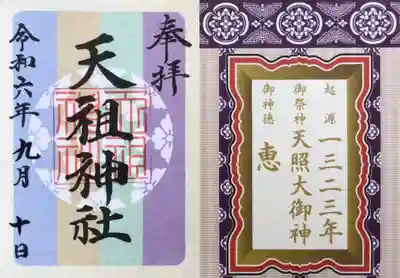 奉拝
天祖神社
令和六年九月十日
起源 一三二三年
御祭神 天照大御神
御神徳 恵